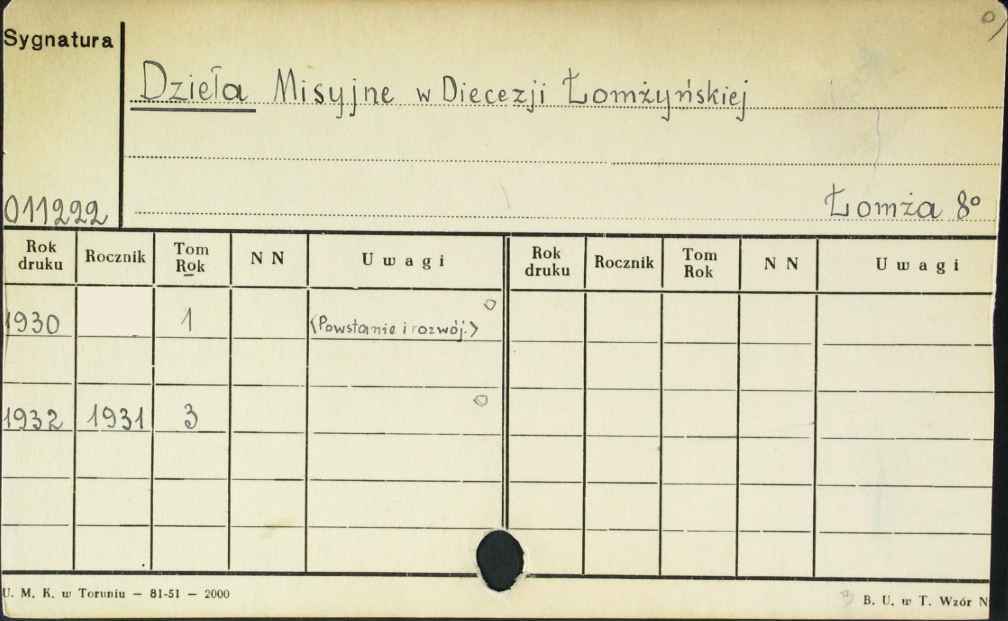 Sygnatura
Dzieła Misyjne w Diecezji Łomżyńskiej
011222
Łomża 8°
Rok druku Rocznik Tom Rok N N Uwagi Rok druku Rocznik Tom Rok N N Uwagi
1930 1 <Powstanie i rozwój.>
1932 1931 3
U. M. K. w Toruniu — 81-51 — 2000
B. U. w T. Wzór N